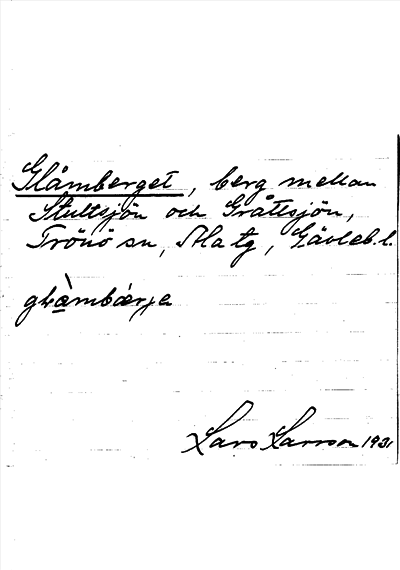 Glåmberget, berg mellan
Stuttsjön och Gråttsjön,
Trönö sn, Ala tg, Gävleb. l.
Lars Larsson 1931